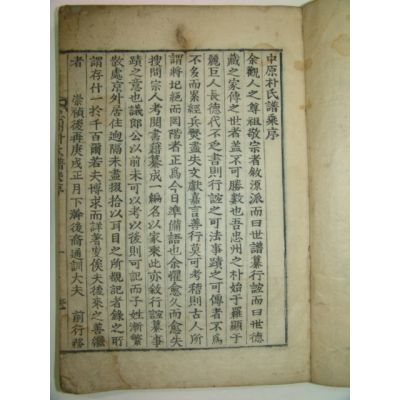 中原朴氏譜乘序
余觀人之尊祖敬宗者敘源派而曰世譜纂行諡而曰世德
藏之家傳之世者盖不可勝數也吾忠州之朴始于羅顯于
麗巨人長德代不乏書則行諡之可法事蹟之可傳者不爲
不多而累經兵燹盡失文獻嘉言善行莫可考稽則古人所
謂將記絶而罔階者正爲今日準備語也余懼愈久而愈失
搜問宗人考閱書籍纂成一編名以家乘此亦敘行諡纂事
蹟之意也議郎公以 可記而子姓漸繁
散處京外居住逈隔未盡掇拾以耳目之所覩記者錄之所
謂存什一於千百爾若夫博求而詳著 俟夫後來之善繼
者 崇禎後再庚戌正月下澣後裔通訓大夫 前行務
朴氏譜乘序 一